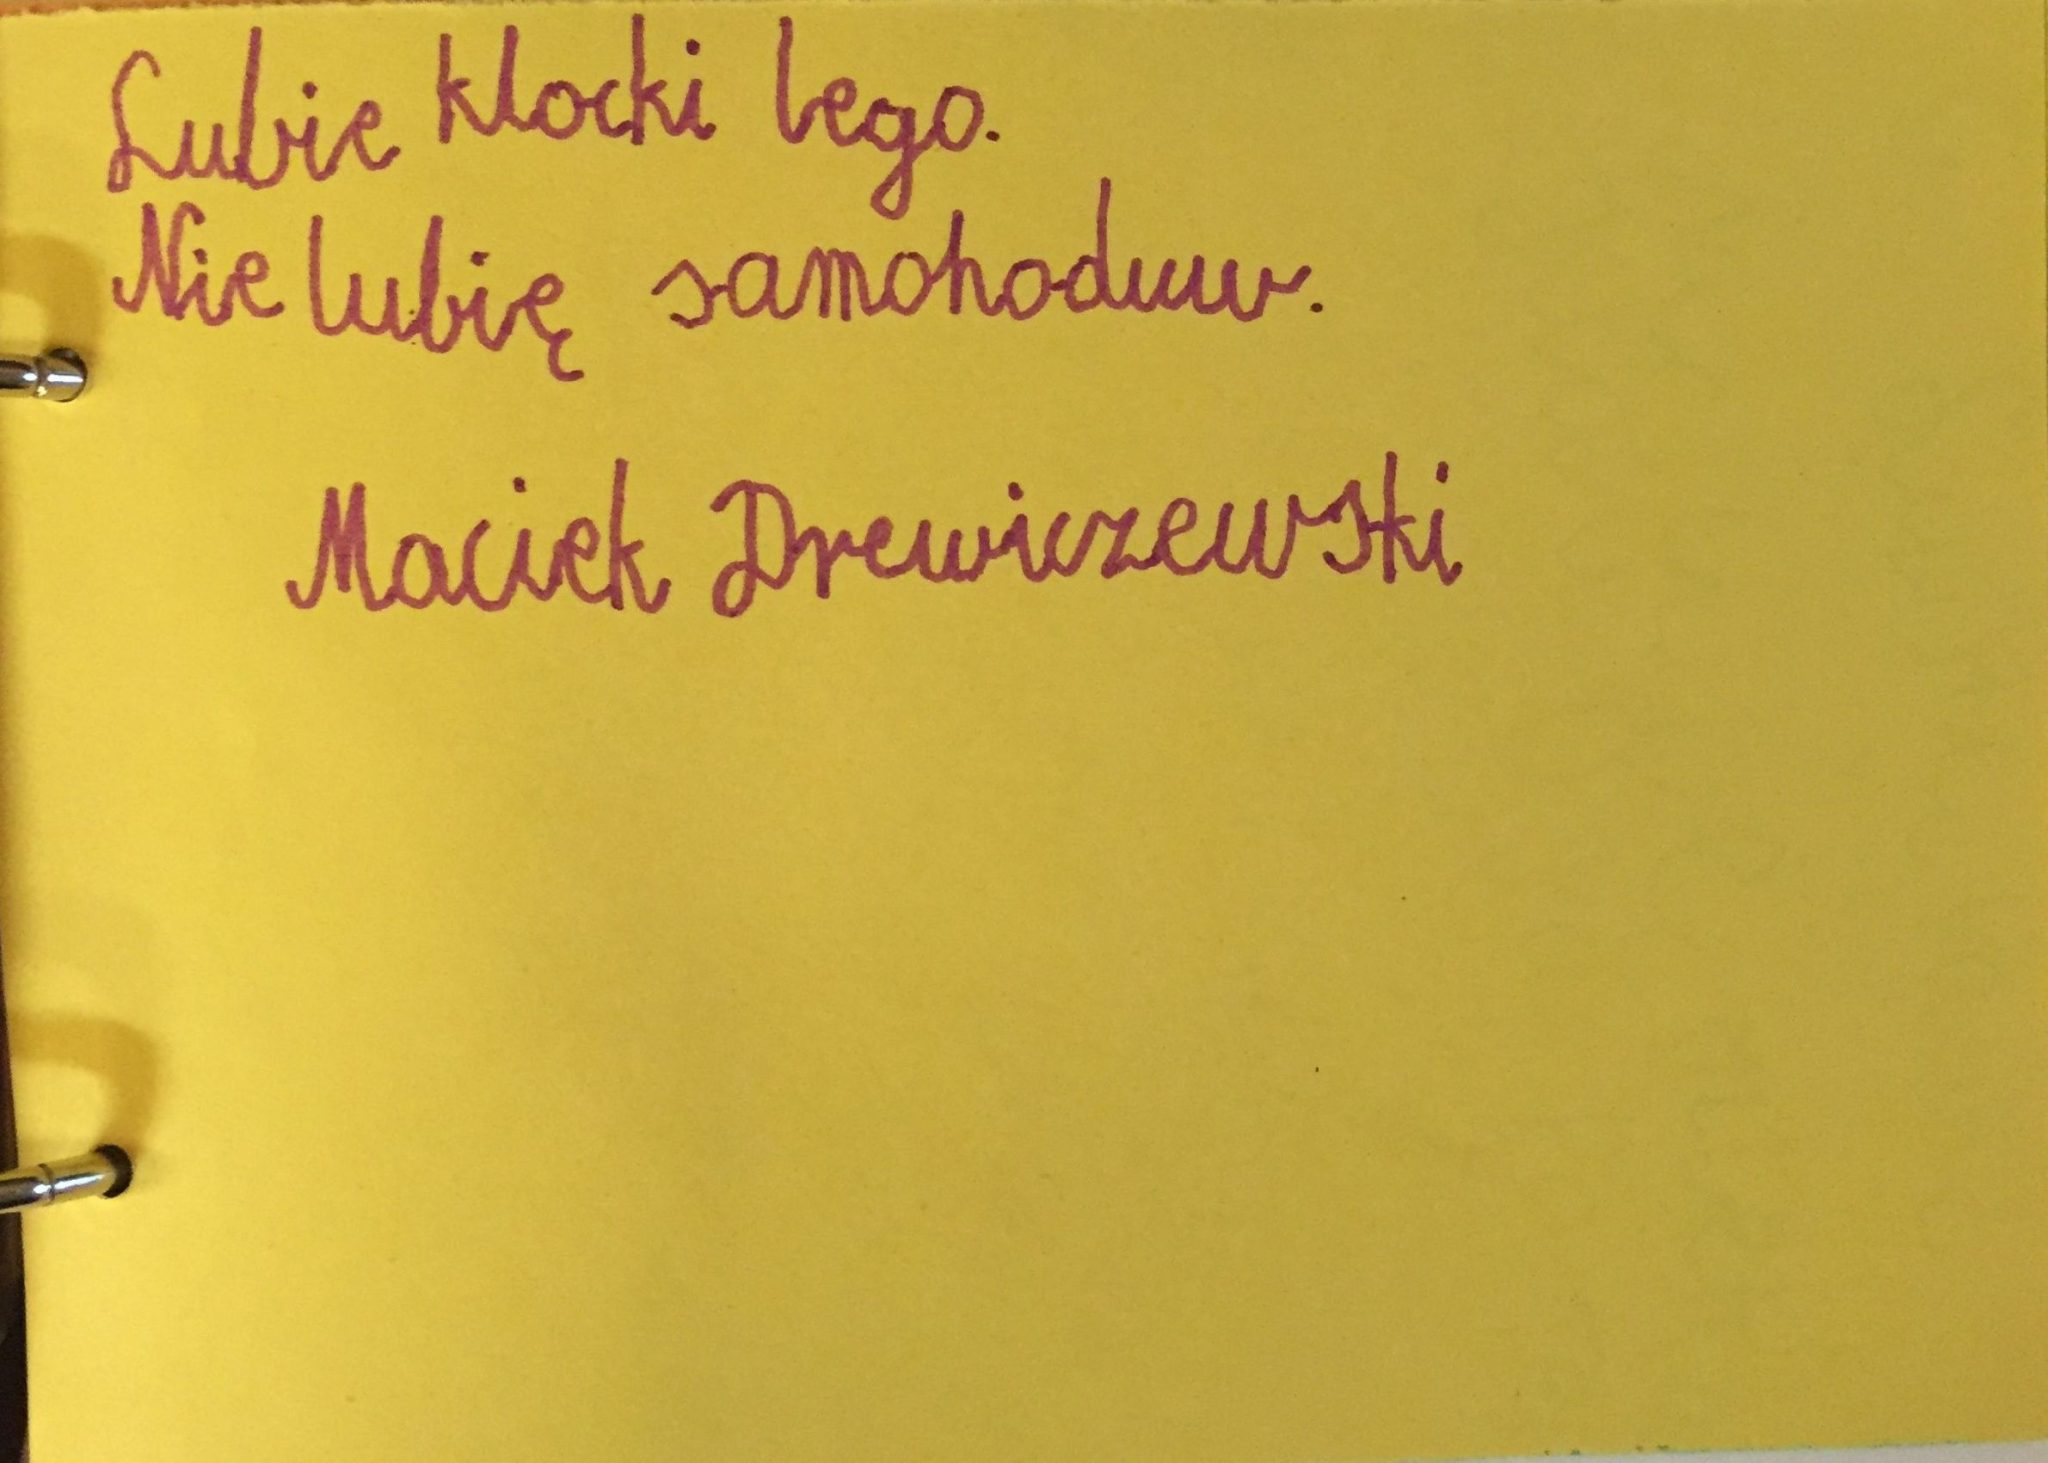 Lubie klocki lego.
Nie lubię samohoduw.
Maciek Drewiczewski